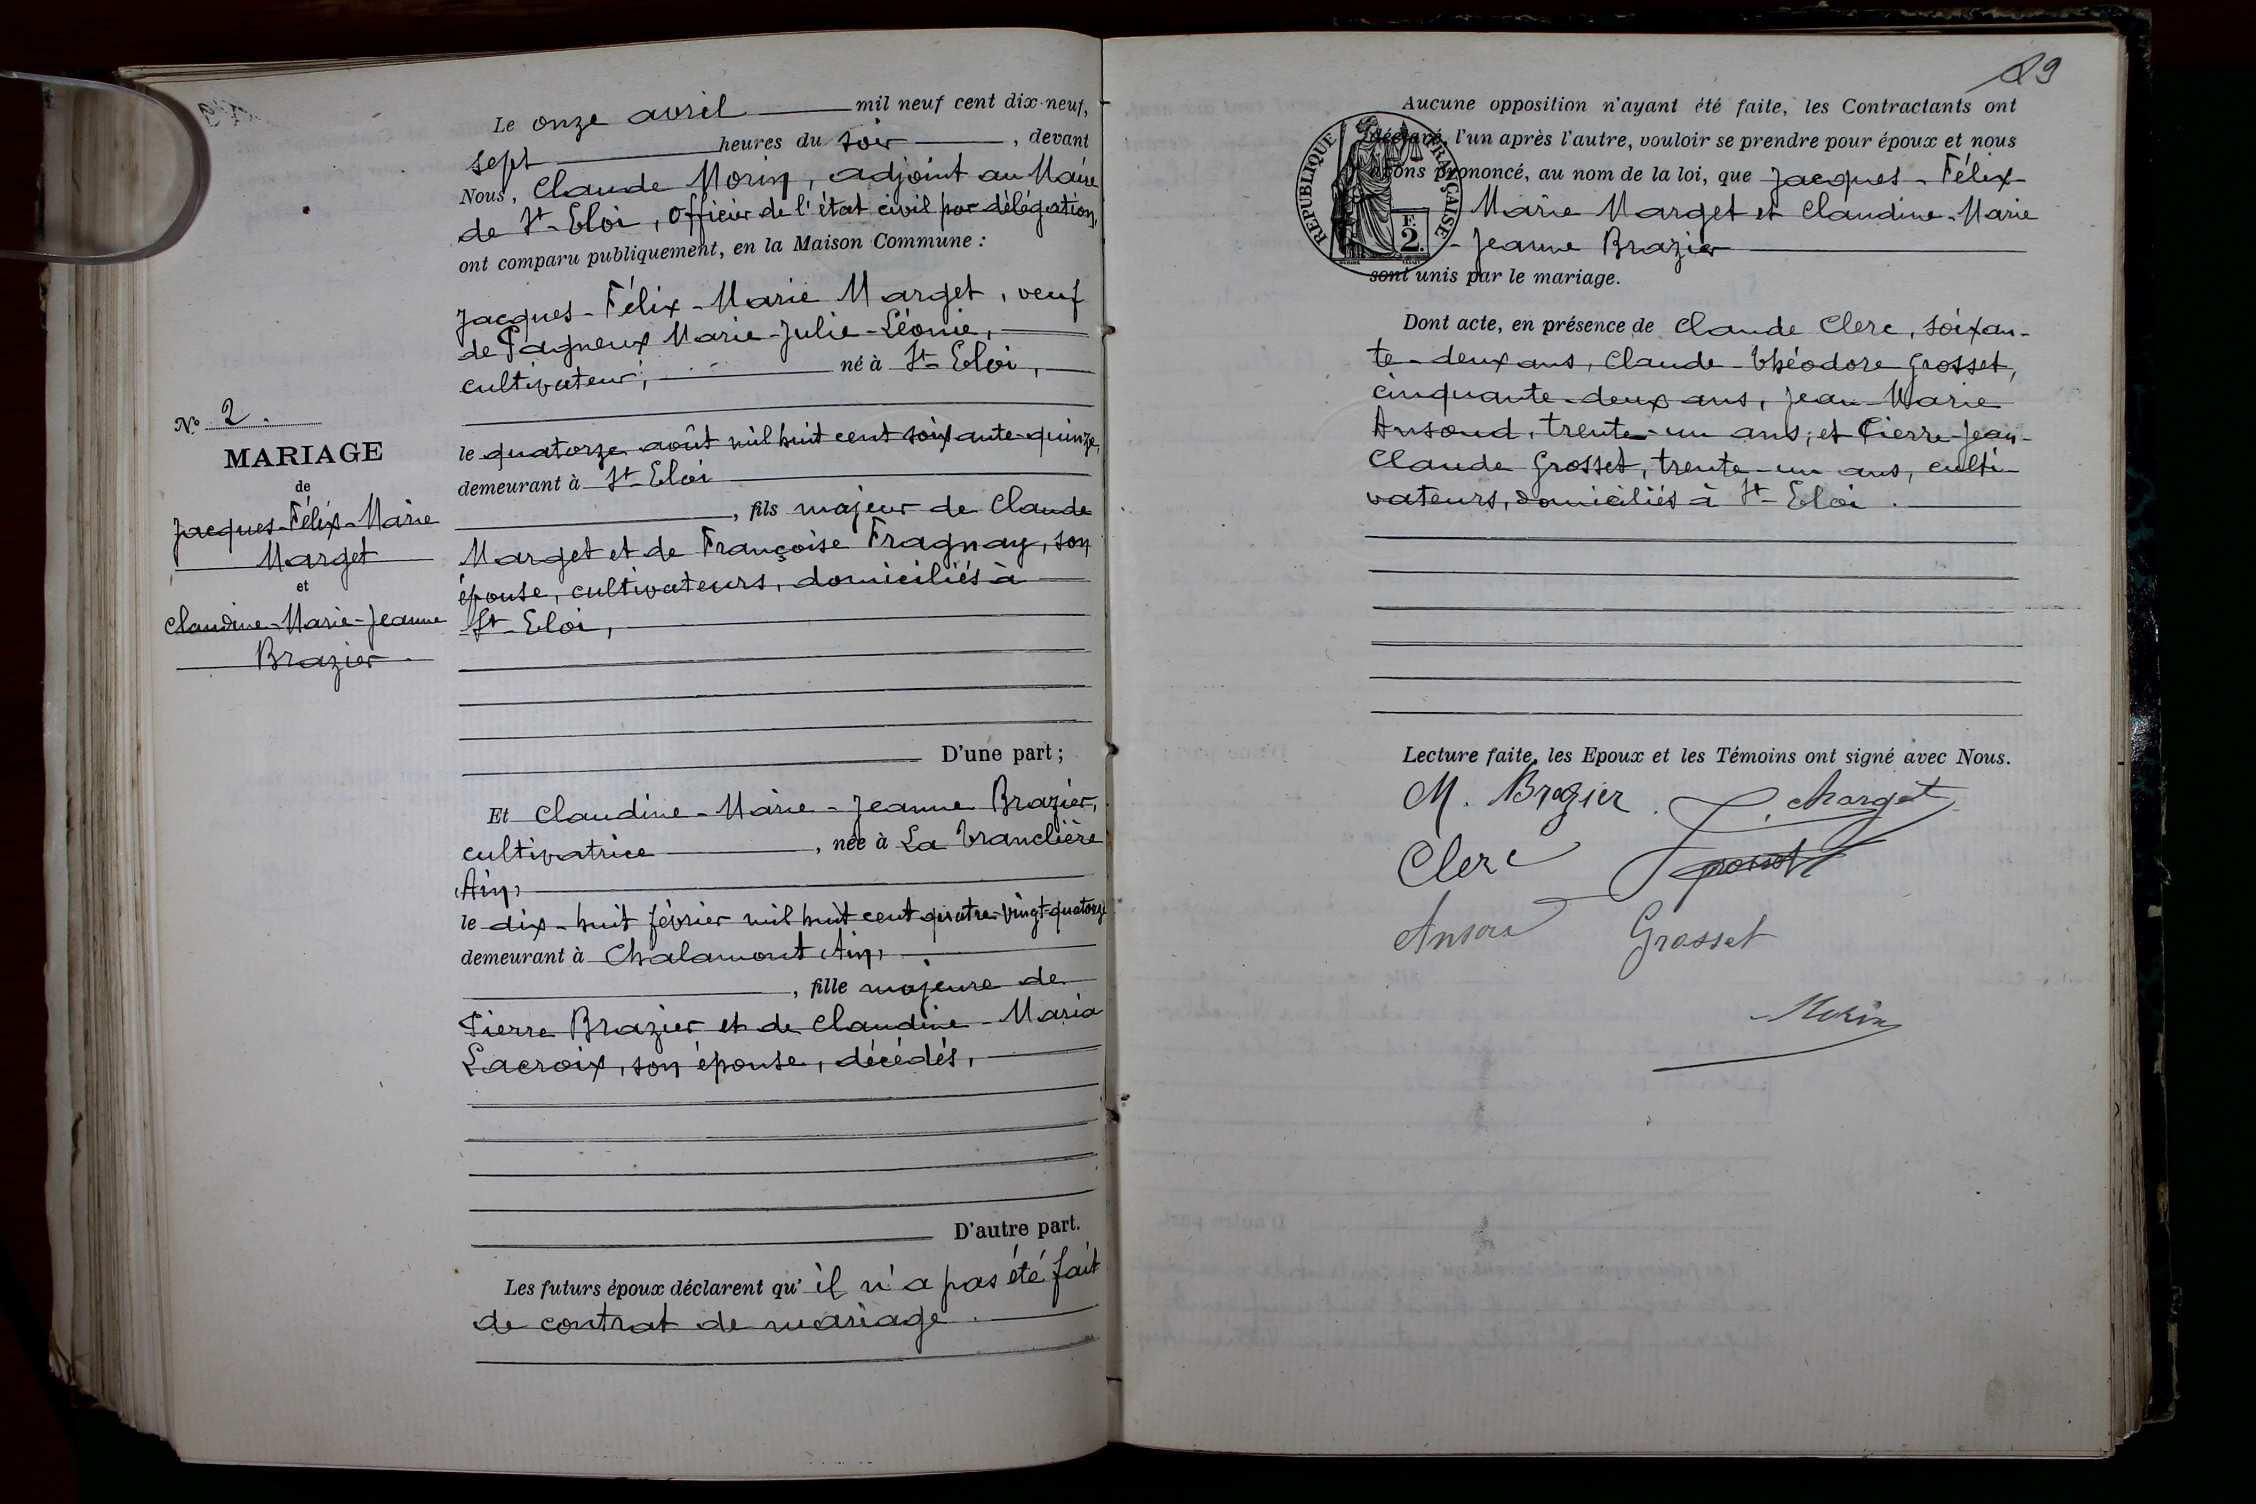 Le onze avril mil neuf cent dix-neuf,
sept heures du soir, devant
Nous, Claude Morin, adjoint au Maire
de St-Eloi, Officier de l'état civil par délégation,
ont comparu publiquement, en la Maison Commune :
Jacques-Félix-Marie Marget, veuf
de Pagneux Marie-Julie-Léonie,
cultivateur, né à St-Eloi,
le quatorze août mil huit cent soixante-quinze,
demeurant à St-Eloi
, fils majeur de Claude
Marget et de Françoise Fragnay, son
épouse, cultivateurs, domiciliés à
St-Eloi,
D'une part ;
Et Claudine-Marie-Jeanne Brazier,
cultivatrice, née à La Tranclière
(Ain)
le dix-huit février mil huit cent quatre-vingt-quatorze
demeurant à Chalamont (Ain)
, fille majeure de
Pierre Brazier et de Claudine-Maria
Lacroix, son épouse, décédés,
D'autre part.
Les futurs époux déclarent qu'il n'a pas été fait
de contrat de mariage.
N° 2.
MARIAGE
de
Jacques-Félix-Marie
Marget
et
Claudine-Marie-Jeanne
Brazier
89
Aucune opposition n'ayant été faite, les Contractants ont
déclaré, l'un après l'autre, vouloir se prendre pour époux et nous
avons prononcé, au nom de la loi, que Jacques-Félix
Marie Marget et Claudine-Marie
-Jeanne Brazier
sont unis par le mariage.
REPUBLIQUE FRANÇAISE
F.
2.
Dont acte, en présence de Claude Clerc, soixan-
te-deux ans, Claude-Théodore Grosset,
cinquante-deux ans, Jean-Marie
Ansoud, trente-un ans, et Pierre-Jean-
Claude Grosset, trente-un ans, culti-
vateurs, domiciliés à St-Eloi.
Lecture faite, les Epoux et les Témoins ont signé avec Nous.
M. Brazier. J. Marget
Clerc Grosset
Ansoud Grosset
Morin